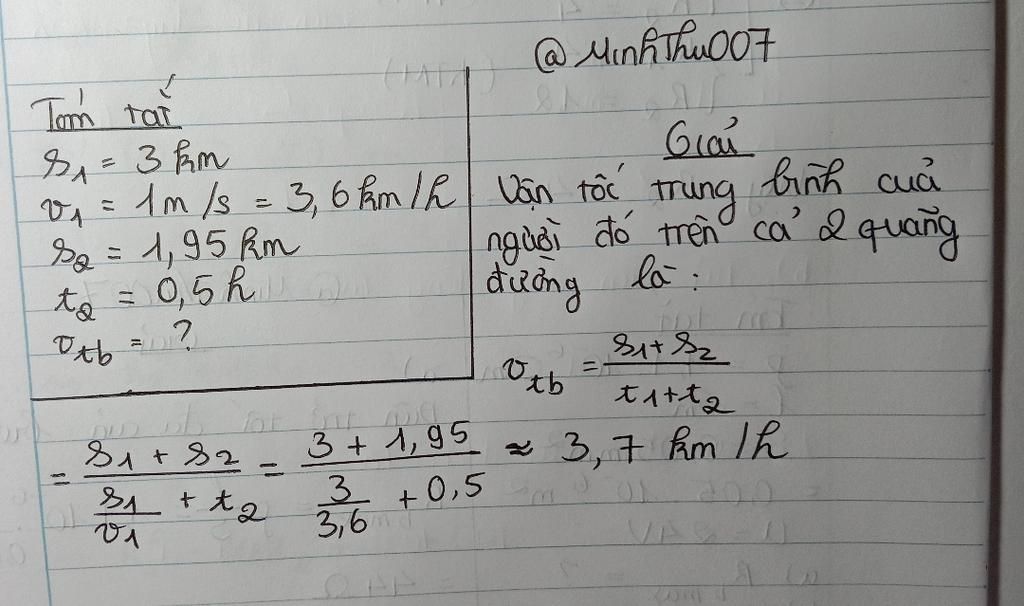 @MinhThu007
Tóm tắt
s₁ = 3 km
v₁ = 1m/s = 3,6 km/h
s₂ = 1,95 km
t₂ = 0,5 h
v_tb = ?
Giải
Vận tốc trung bình của
người đó trên cả 2 quãng
đường là :
v_tb = (s₁ + s₂)/(t₁ + t₂)
= (s₁ + s₂)/(s₁/v₁ + t₂) = (3 + 1,95)/(3/3,6 + 0,5) ≈ 3,7 km/h